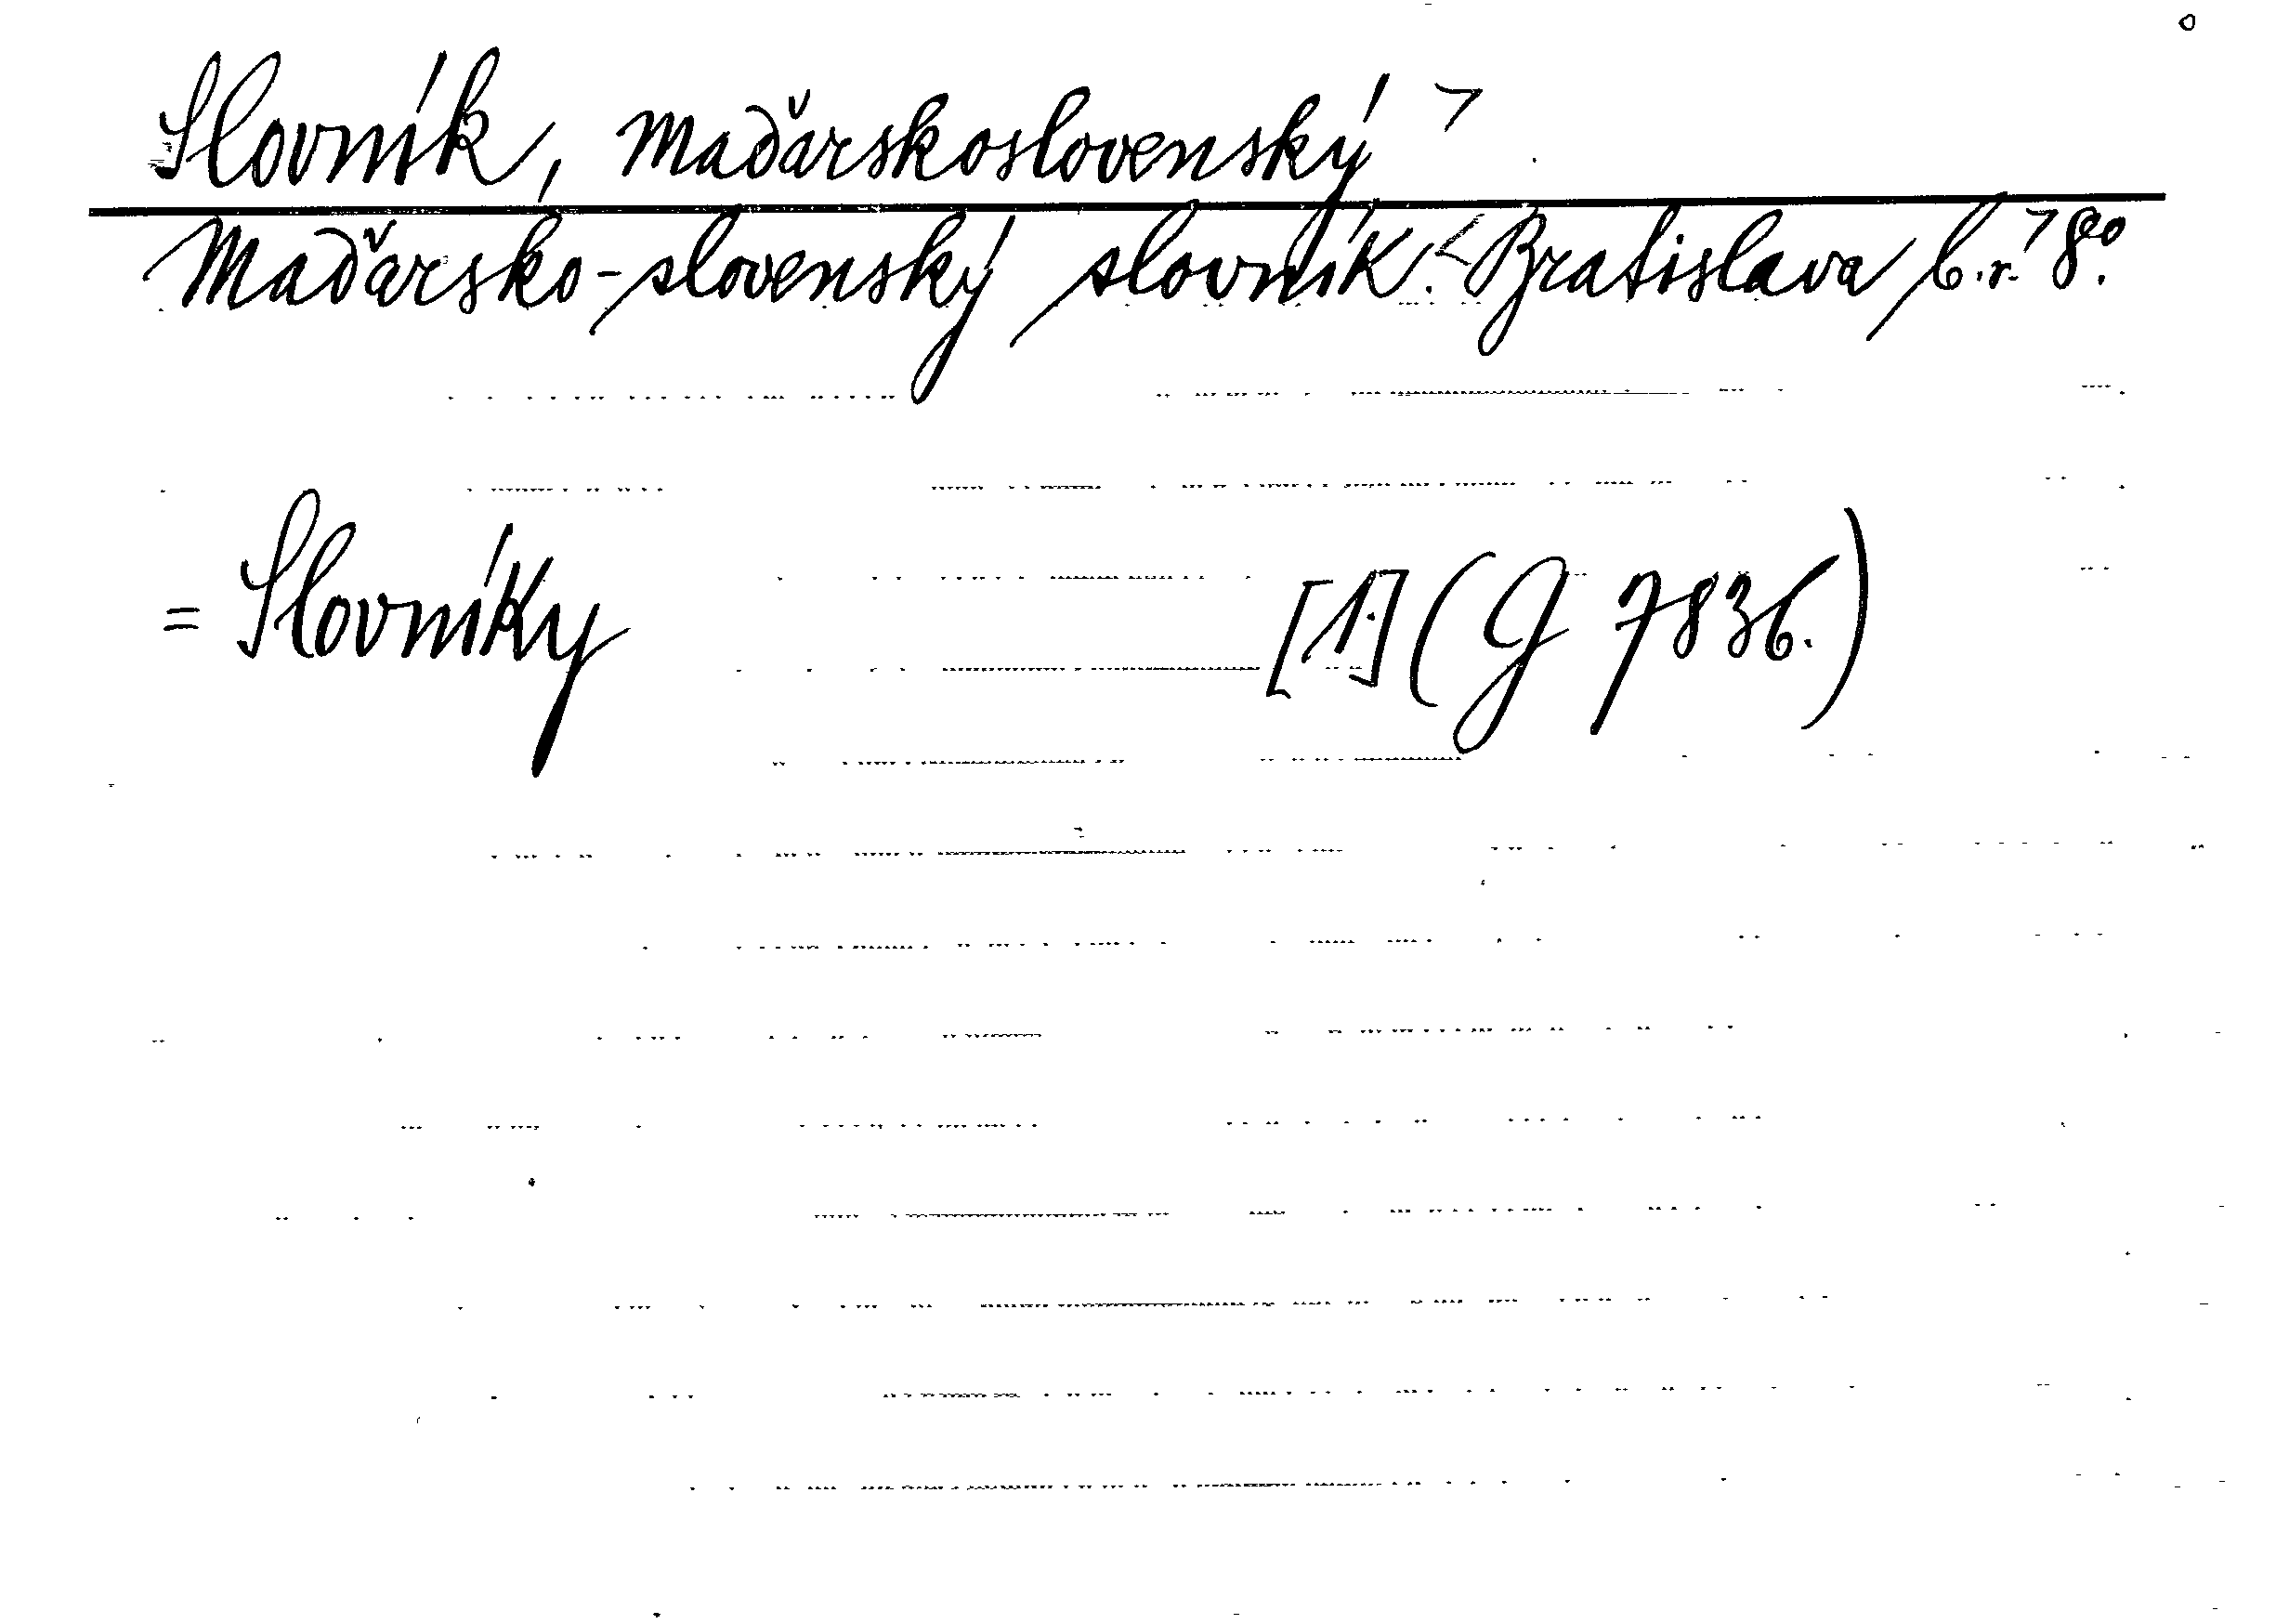 Slovník, maďarskoslovenský >
Maďarsko-slovenský slovník. <Bratislava b.r.> 8°.
= Slovníky [1.] (G 7836.)